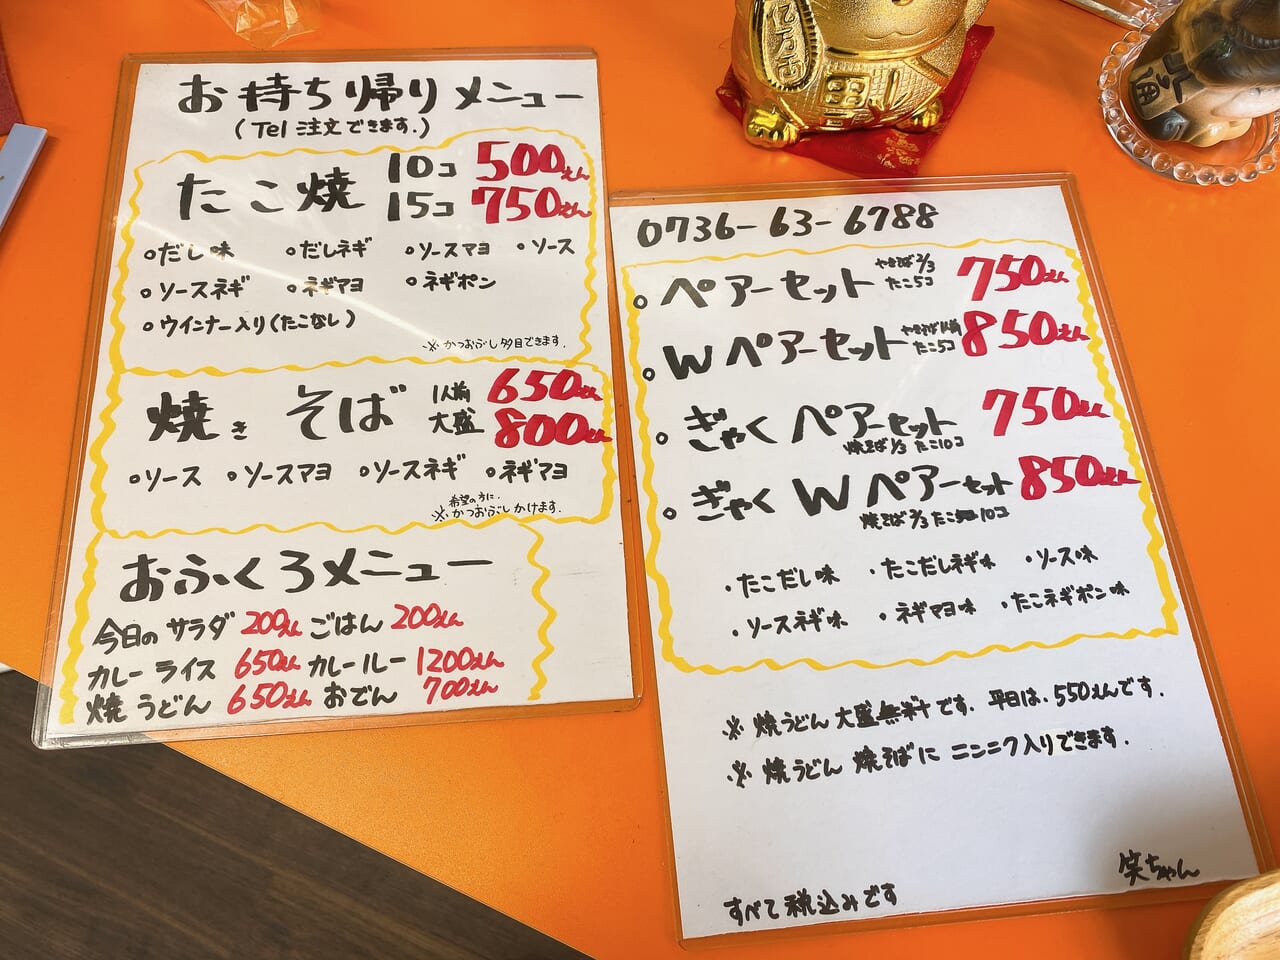 お持ち帰りメニュー
(Tel 注文できます.)
たこ焼 10コ 500えん
15コ 750えん
○だし味 ○だしネギ ○ソースマヨ ○ソース
○ソースネギ ○ネギマヨ ○ネギポン
○ウインナー入り(たこなし)
※かつおぶし多目できます.
焼きそば 1人前 650えん
大盛 800えん
○ソース ○ソースマヨ ○ソースネギ ○ネギマヨ
希望の方に.
※かつおぶしかけます.
おふくろメニュー
今日のサラダ 200えん ごはん 200えん
カレーライス 650えん カレールー 1200えん
焼うどん 650えん おでん 700えん
0736-63-6788
○ペアーセット やきそば2/3 たこ5コ 750えん
○Wペアーセット やきそば1人前 たこ5コ 850えん
○ぎゃくペアーセット 750えん
焼そば1/3 たこ10コ
○ぎゃくWペアーセット 850えん
焼そば2/3 たこ10コ
・たこだし味 ・たこだしネギ味 ・ソース味
・ソースネギ味 ・ネギマヨ味 ・たこネギポン味
※焼うどん大盛無料です. 平日は、550えんです.
※焼うどん 焼そばに ニンニク入りできます.
笑ちゃん
すべて税込みです